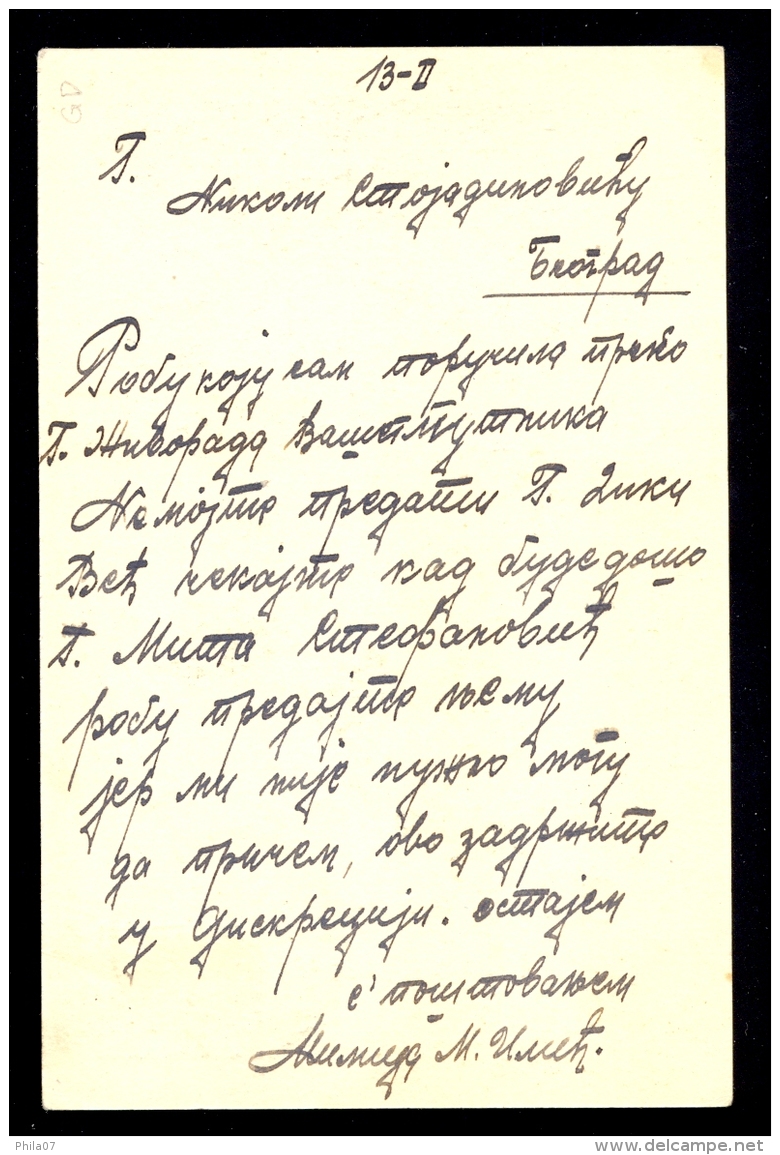 13-II
GD
Г.
Николи Стојадиновићу
Београд
Робу коју сам поручила преко
Г. Живорада Вашег путника
Немојте предати Г. Зики
Већ чекајте кад буде дошо
Г. Мита Стефановић
робу предајте њему
јер ми није нужно могу
да причем, ово задржите
у Дискрецији. остајем
с' поштовањем
М. Илић.
Phila07
www.delcampe.net